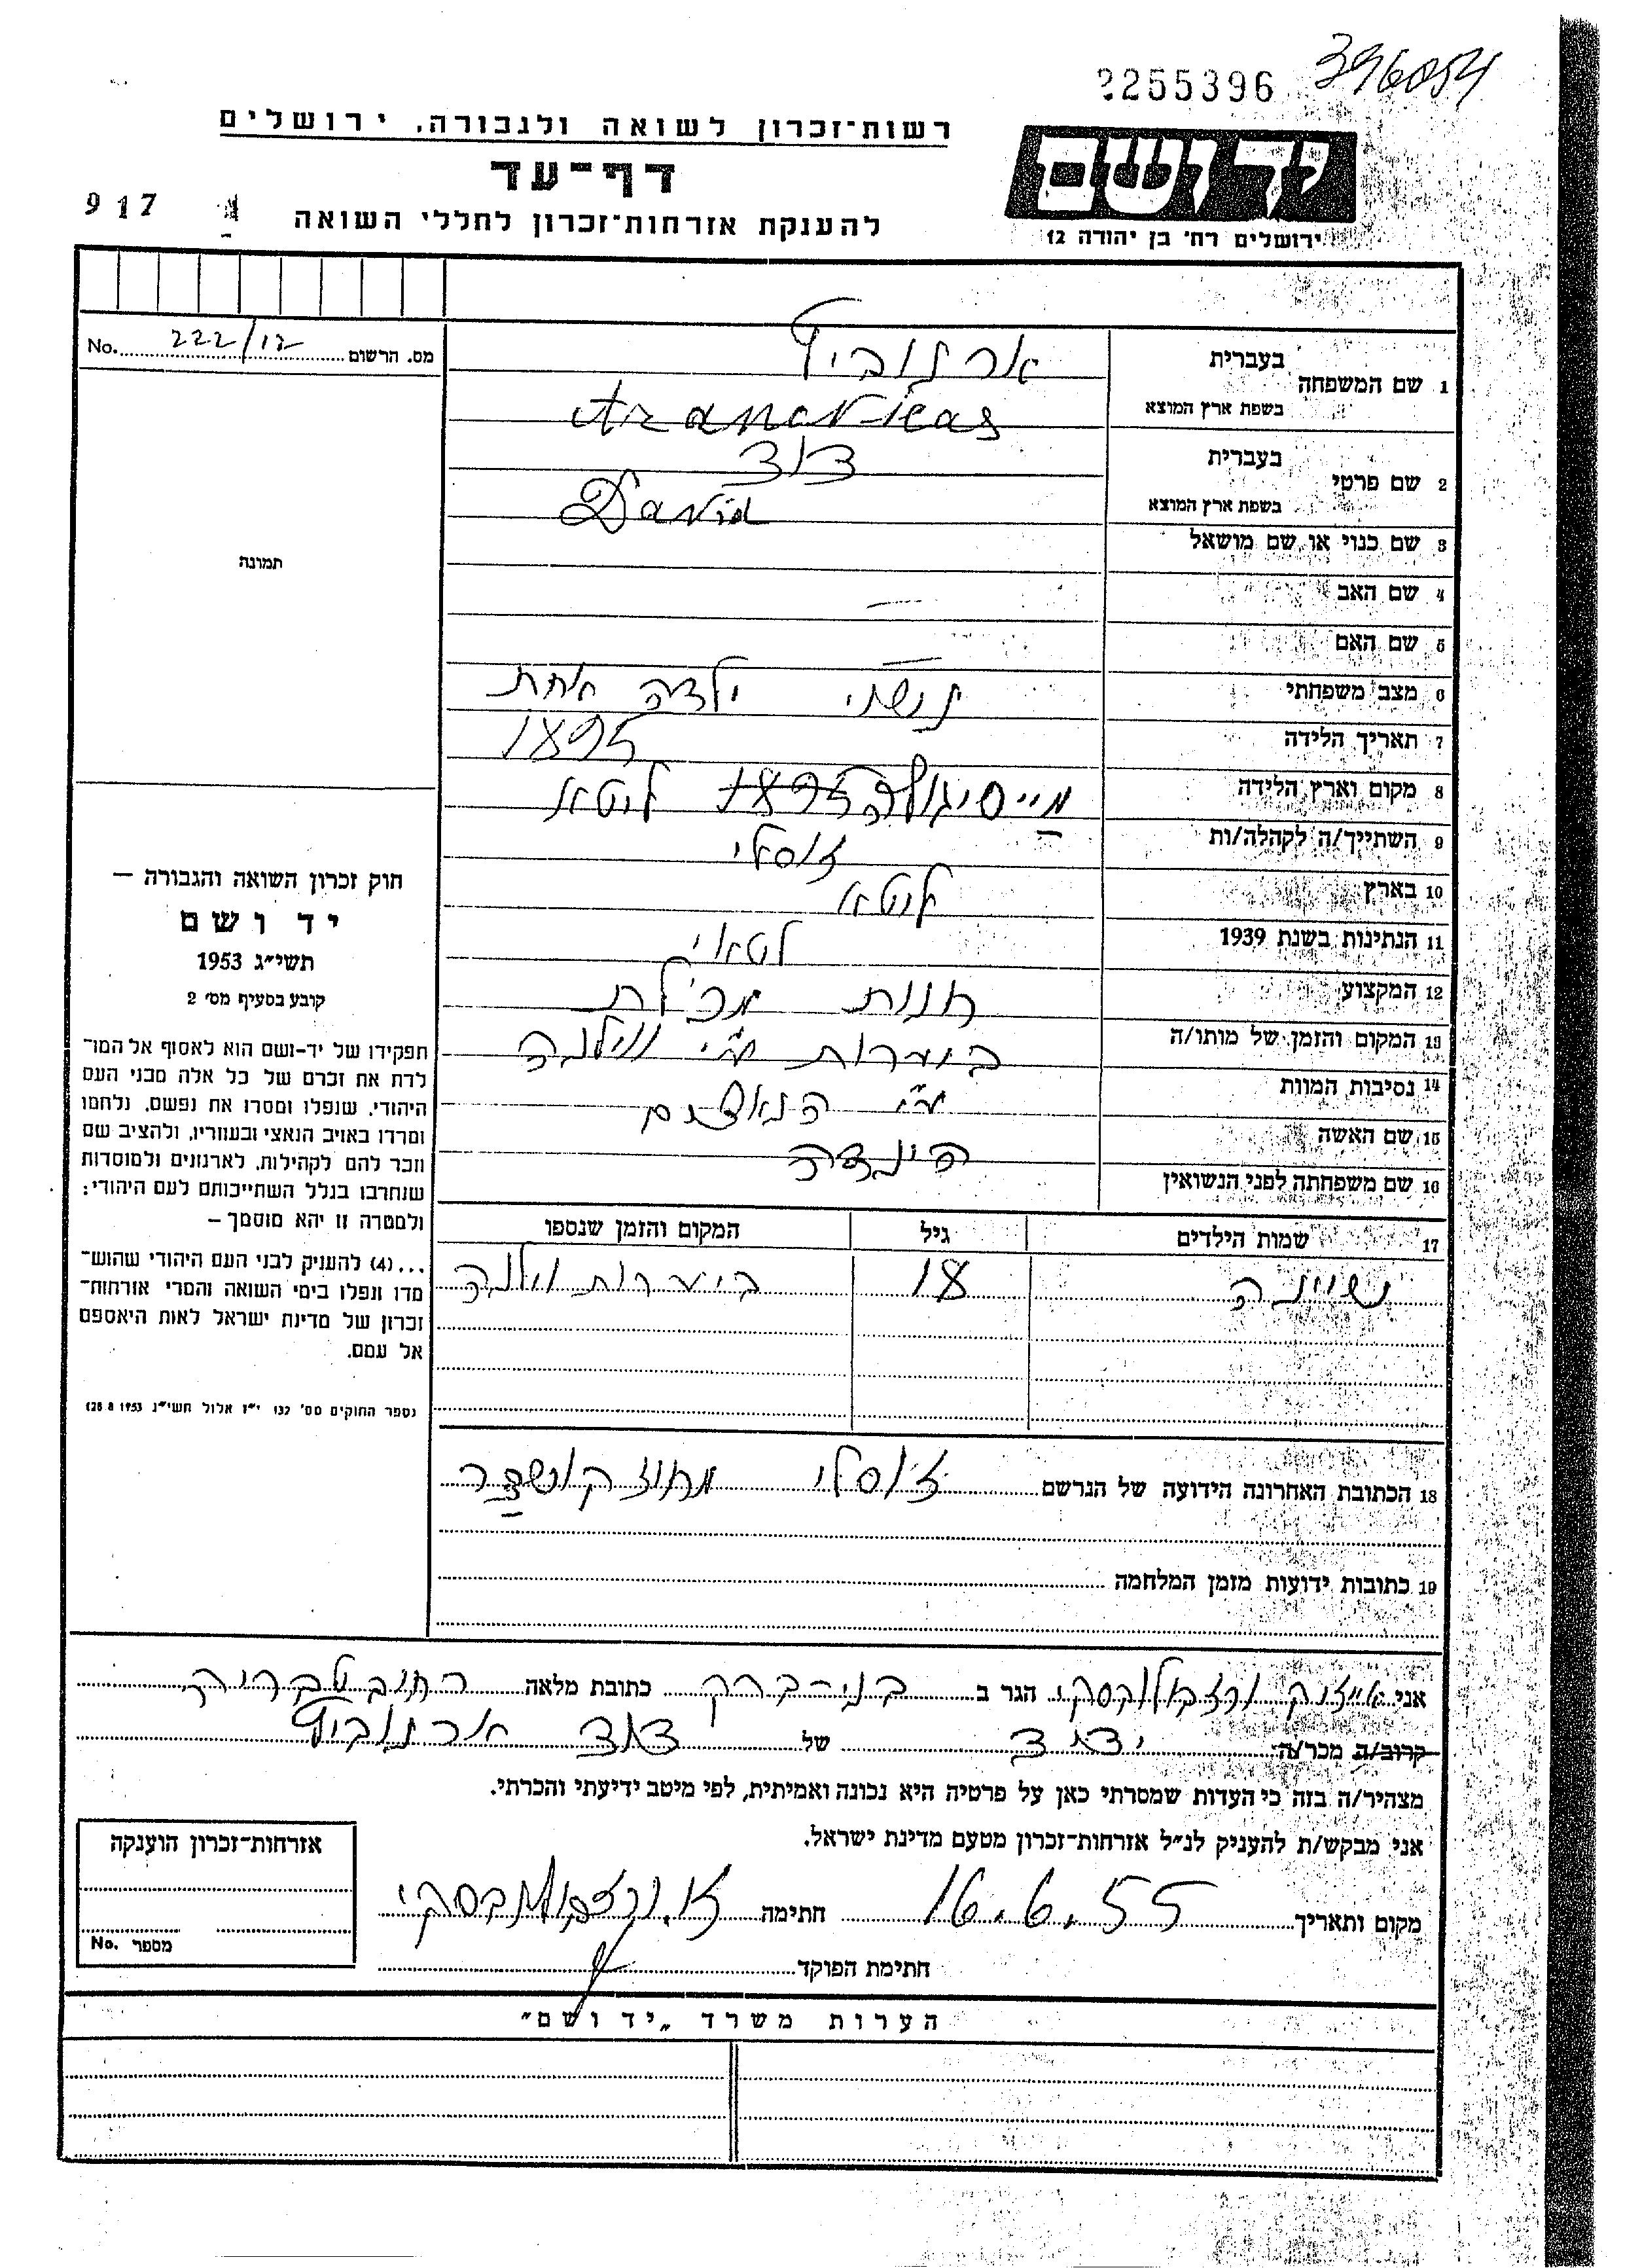 2255396 396054
רשות־זכרון לשואה ולגבורה, ירושלים
דף־עד
להענקת אזרחות־זכרון לחללי השואה
917
יד ושם
ירושלים רח' בן יהודה 12
מס. הרשום 222/12 No.
1 שם המשפחה בעברית ארנוביץ
בשפת ארץ המוצא Aranovicas
2 שם פרטי בעברית דוד
בשפת ארץ המוצא David
3 שם כנוי או שם מושאל
4 שם האב —
5 שם האם —
6 מצב משפחתי נשוי ילדה אחת
7 תאריך הלידה 1895
8 מקום וארץ הלידה 1895 ליטא
9 השתייך/ה לקהלה/ות זוסלי
10 בארץ ליטא
11 הנתינות בשנת 1939 לטאי
12 המקצוע חנות מכלת
13 המקום והזמן של מותו/ה ביערות ע"י ווילנה
14 נסיבות המוות ע"י הנאצים
15 שם האשה הינדה
16 שם משפחתה לפני הנשואין
17 שמות הילדים גיל המקום והזמן שנספו
שיינה 18 ביערות וילנה
18 הכתובת האחרונה הידועה של הנרשם ז'וסלי מחוז קושדר
19 כתובות ידועות מזמן המלחמה
תמונה
חוק זכרון השואה והגבורה —
יד ושם
תשי״ג 1953
קובע בסעיף מס׳ 2
תפקידו של יד-ושם הוא לאסוף אל המו־
לדת את זכרם של כל אלה מבני העם
היהודי, שנפלו ומסרו את נפשם, נלחמו
ומרדו באויב הנאצי ובעוזריו, ולהציב שם
וזכר להם לקהילות, לארגונים ולמוסדות
שנחרבו בגלל השתייכותם לעם היהודי;
ולמטרה זו יהא מוסמך —
...(4) להעניק לבני העם היהודי שהוש־
מדו ונפלו בימי השואה והמרי אזרחות־
זכרון של מדינת ישראל לאות היאספם
אל עמם.
נספר החוקים מס׳ 132 י״ז אלול תשי״ג 28.8.1953)
אני אייזיק הגר ב בני־ברק כתובת מלאה רחוב טבריה
קרוב/ה מכר/ה ידיד של דוד ארנוביץ
מצהיר/ה בזה כי העדות שמסרתי כאן על פרטיה היא נכונה ואמיתית, לפי מיטב ידיעתי והכרתי.
אני מבקש/ת להעניק לנ״ל אזרחות־זכרון מטעם מדינת ישראל.
מקום ותאריך 16.6.55 חתימה
חתימת הפוקד
אזרחות־זכרון הוענקה
מספר No.
הערות משרד „יד ושם״